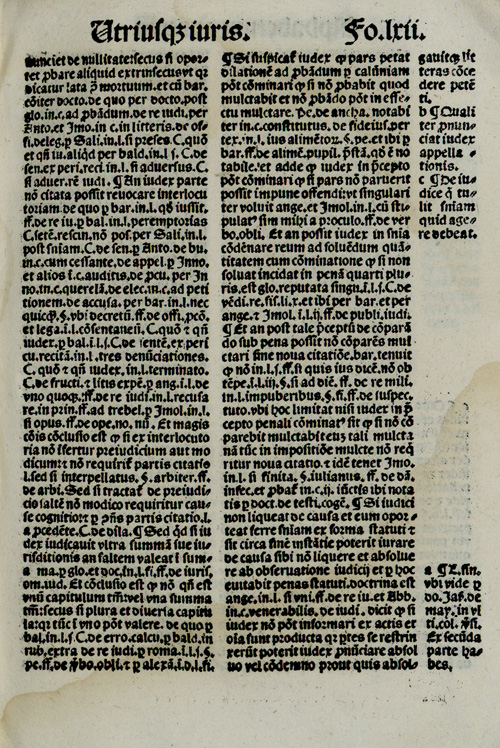 Utriusqꝫ iuris. Fo.lxii.
nunciet de nullitate:secus si opor-
tet ꝓbare aliquid extrinsecus:vt qꝛ
dicatur lata ꝑ mortuum.et cū bar.
cōiter docto.de quo per docto.post
glo.in.c.ad ꝓbādum.de re iudi.per
Anto.et Imo.in c.in litteris.de of-
fi.deleg.ꝑ Sali.in.l.si preses.C.quō
et qñ iu.aliqđ per bald.in.l.j.C.de
sen.ex peri.reci.in.l.si aduersus.C.
si aduer.rē iudi. ¶ An iudex parte
nō citata possit reuocare interlocu
toriam de quo ꝑ bar.in.l.qđ iussit.
ff.de re iu.ꝑ bal.in.l.peremptorias
C.sētē.rescin.nō pos.per Sali.in.l.
post sñiam.C.de sen.ꝑ Anto.de bu.
in.c.cum cessante.de appel.ꝑ Inno.
et alios ī.c.auditis.de ꝓcu.per In
no.in.c.querelā.de elec.in.c.ad peti
tionem.de accusa.per bar.in.l.nec
quicꝙ.§.vbi decretū.ff.de offi.ꝓcō.
et lega.ī.l.cōsentaneū.C.quō ⁊ qñ
iudex.ꝑ bal.ī.l.j.C.de sentē.ex peri
cu.recitā.in.l.tres denūciationes.
C.quō ⁊ qñ iudex.in.l.terminato.
C.de fructi.⁊ litis expē.ꝑ ang.ī.l.de
vno quoqꝫ.ff.de re iudi.in.l.recusa
re.in prin.ff.ad trebel.ꝑ Imol.in.l.
si opus.ff.de ope.no.nū. Et magis
cōis cōclusio est ꝙ si ex interlocuto
ria nō īfertur preiudicium aut mo
dicum:⁊ nō requiriť partis citatio
l.sed si interpellatus.§.arbiter.ff.
de arbi. Sed si tractať de preiudi-
cio saltē nō modico requiritur cau-
se cognitio:⁊ ꝑ ꝯñs partis citatio.l.
a ꝓcedēte.C.de dila. ¶ Sed qđ si iu
dex iudicauit vltra summā sue iu-
risditionis an saltem valeat ī sum-
ma.ꝑ glo.et hoc.in.l.fi.ff.de iuris.
om.iud. Et cōclusio est ꝙ nō.qñ est
vnū capitulum tm̄:vel vna summa
tm̄:secus si plura et diuersa capitu
la:qꝛ tūc ī vno pōt valere. de quo ꝑ
bal.in.l.j.C.de erro.calcu.ꝑ bald.in
rub.extra de re iudi.ꝑ roma.ī.l.j.§.
pe.ff.de ṽbo.obli.⁊ ꝑ alexā.ī.d.l.fi.
¶ Si suspicať iudex ꝙ pars petat
dilationē ad ꝓbādum ꝑ calūniam
pōt cōminari ꝙ si nō ꝓbabit quod
mulctabit et nō ꝓbādo pōt in effe-
ctu mulctare. Pe.de ancha. notabi
ter in.c.constitutus.de fideius.per
tex.in.l.ius alimētor.§.pe.et ibi ꝑ
bar.ff.de alimē.pupil.p̄stā.qđ ē no
tabile.et adde ꝙ iudex in p̄cepto
pōt cōminari ꝙ si pars nō paruerit
possit impune offendi:et singulari
ter voluit ange.et Imol.in.l.cū sti-
pulať sim mihi a proculo.ff.de ver
bo.obli. Et an possit iudex in sñia
cōdēnare reum ad soluēdum quā-
titatem cum cōminatione ꝙ si non
soluat incidat in penā quarti plu-
ris.est glo.reputata singu.ī.l.j.C.de
vēdi.re.fis.li.x.et ibi per bar.et per
ange.⁊ Imol. ī.l.ij.ff.de publi.iudi.
¶ Et an post tale p̄ceptū de cōparē
do sub pena possit nō cōparēs mul
ctari sine noua citatiōe.bar.tenuit
ꝙ nō in.l.j.ff.si quis ius dicē.nō ob
tēpe.ī.l.iij.§.si ad diē.ff.de re mili.
in.l.impuberibus.§.fi.ff.de suspec.
tuto.vbi hoc limitat nisi iudex in p̄
cepto penali cōminať sit ꝙ si nō cō
parebit mulctabit euꝫ tali mulcta
nā tūc in impositiōe mulcte nō req̄
ritur noua citatio.⁊ idē tenet Imo.
in.l. si finita. §. iulianus. ff. de dā.
infec.et ꝓbať in.c.ij. iūctis ibi nota
tis ꝑ doct.de testi.cogē. ¶ Si iudici
non liqueat de causa et eum opor-
teat ferre sñiam ex forma statuti ⁊
sit circa fine instātie poterit iurare
de causa sibi nō liquere et absolue
re ab obseruatione iudicij et ꝑ hoc
euitabit penas statuti.doctrina est
ange.in.l. si vni.ff. de re iu.et Abb.
in.c.venerabilis. de iudi. dicit ꝙ si
iudex nō pōt informari ex actis et
oīa sunt producta qꝛ ꝑtes se restrin
xerūt poterit iudex ꝓnūciare absol
uo vel cōdemno prout quis absol-
gauitqꝫ lit
teras cōce
dere petē
ti.
b ¶ Quali
ter ꝓnun-
ciat iudex
appella ⸗
tionis.
c ¶ De iu-
dice q̄ tu-
lit sñiam
quid age-
re debeat.
a ¶ L.fin.
vbi vide ꝑ
do. Jas.de
may. in vl
ti.col. ꝟsi.
Ex secūda
parte ha-
bes.